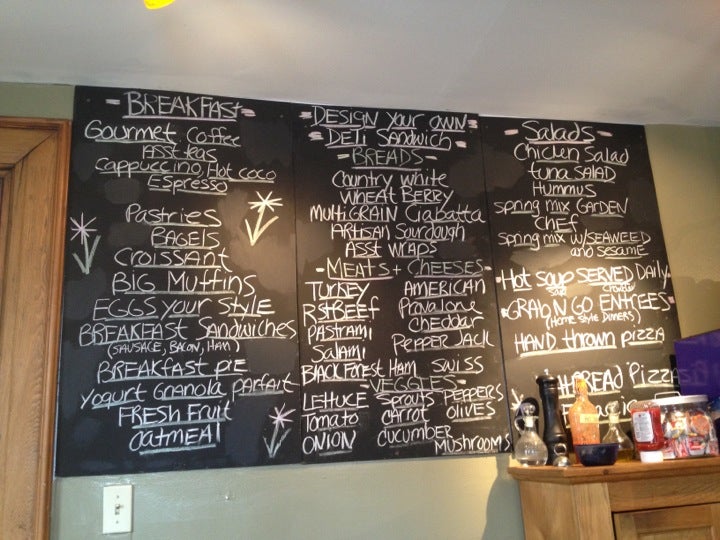 - BREAKFAST -
Gourmet Coffee
ASST teas
Cappuccino, Hot coco
Espresso
Pastries
BAGELS
Croissant
BIG Muffins
EGGS your STYLE
BREAKFEAST Sandwiches
(SAUSAGE, BACON, HAM)
BREAKfAST pie
Yogurt Granola, parfait
FRESH Fruit
OATMEAL
- DESIGN your OWN -
- Deli Sandwich -
- BREADS -
Country white
WHEAT BERRY
Multi GRAIN Ciabatta
ARtisan Sourdough
Asst WRAPS
- MEATS + CHEESES -
TURKEY AMERICAN
RSTBEEF Provalone
PASTRAMI Cheddar
Salami PEPPER JACK
BLACK FOREST HAM SWISS
- VEGGLES -
LETTUCE Sprouts PEPPERS
Tomato CARROT OLIVES
ONION CUCUMBER MUSHROOMS
- Salads -
Chicken Salad
tuna SALAD
HUMMUS
SPRING MIX GARDEN
CHEF
SPRING MIX W/SEAWEED
and sesame
Hot Soup SERVED Daily
GRAB N GO ENTREES
(Home Style DINNERS)
HAND thrown pizza
READ Pizza